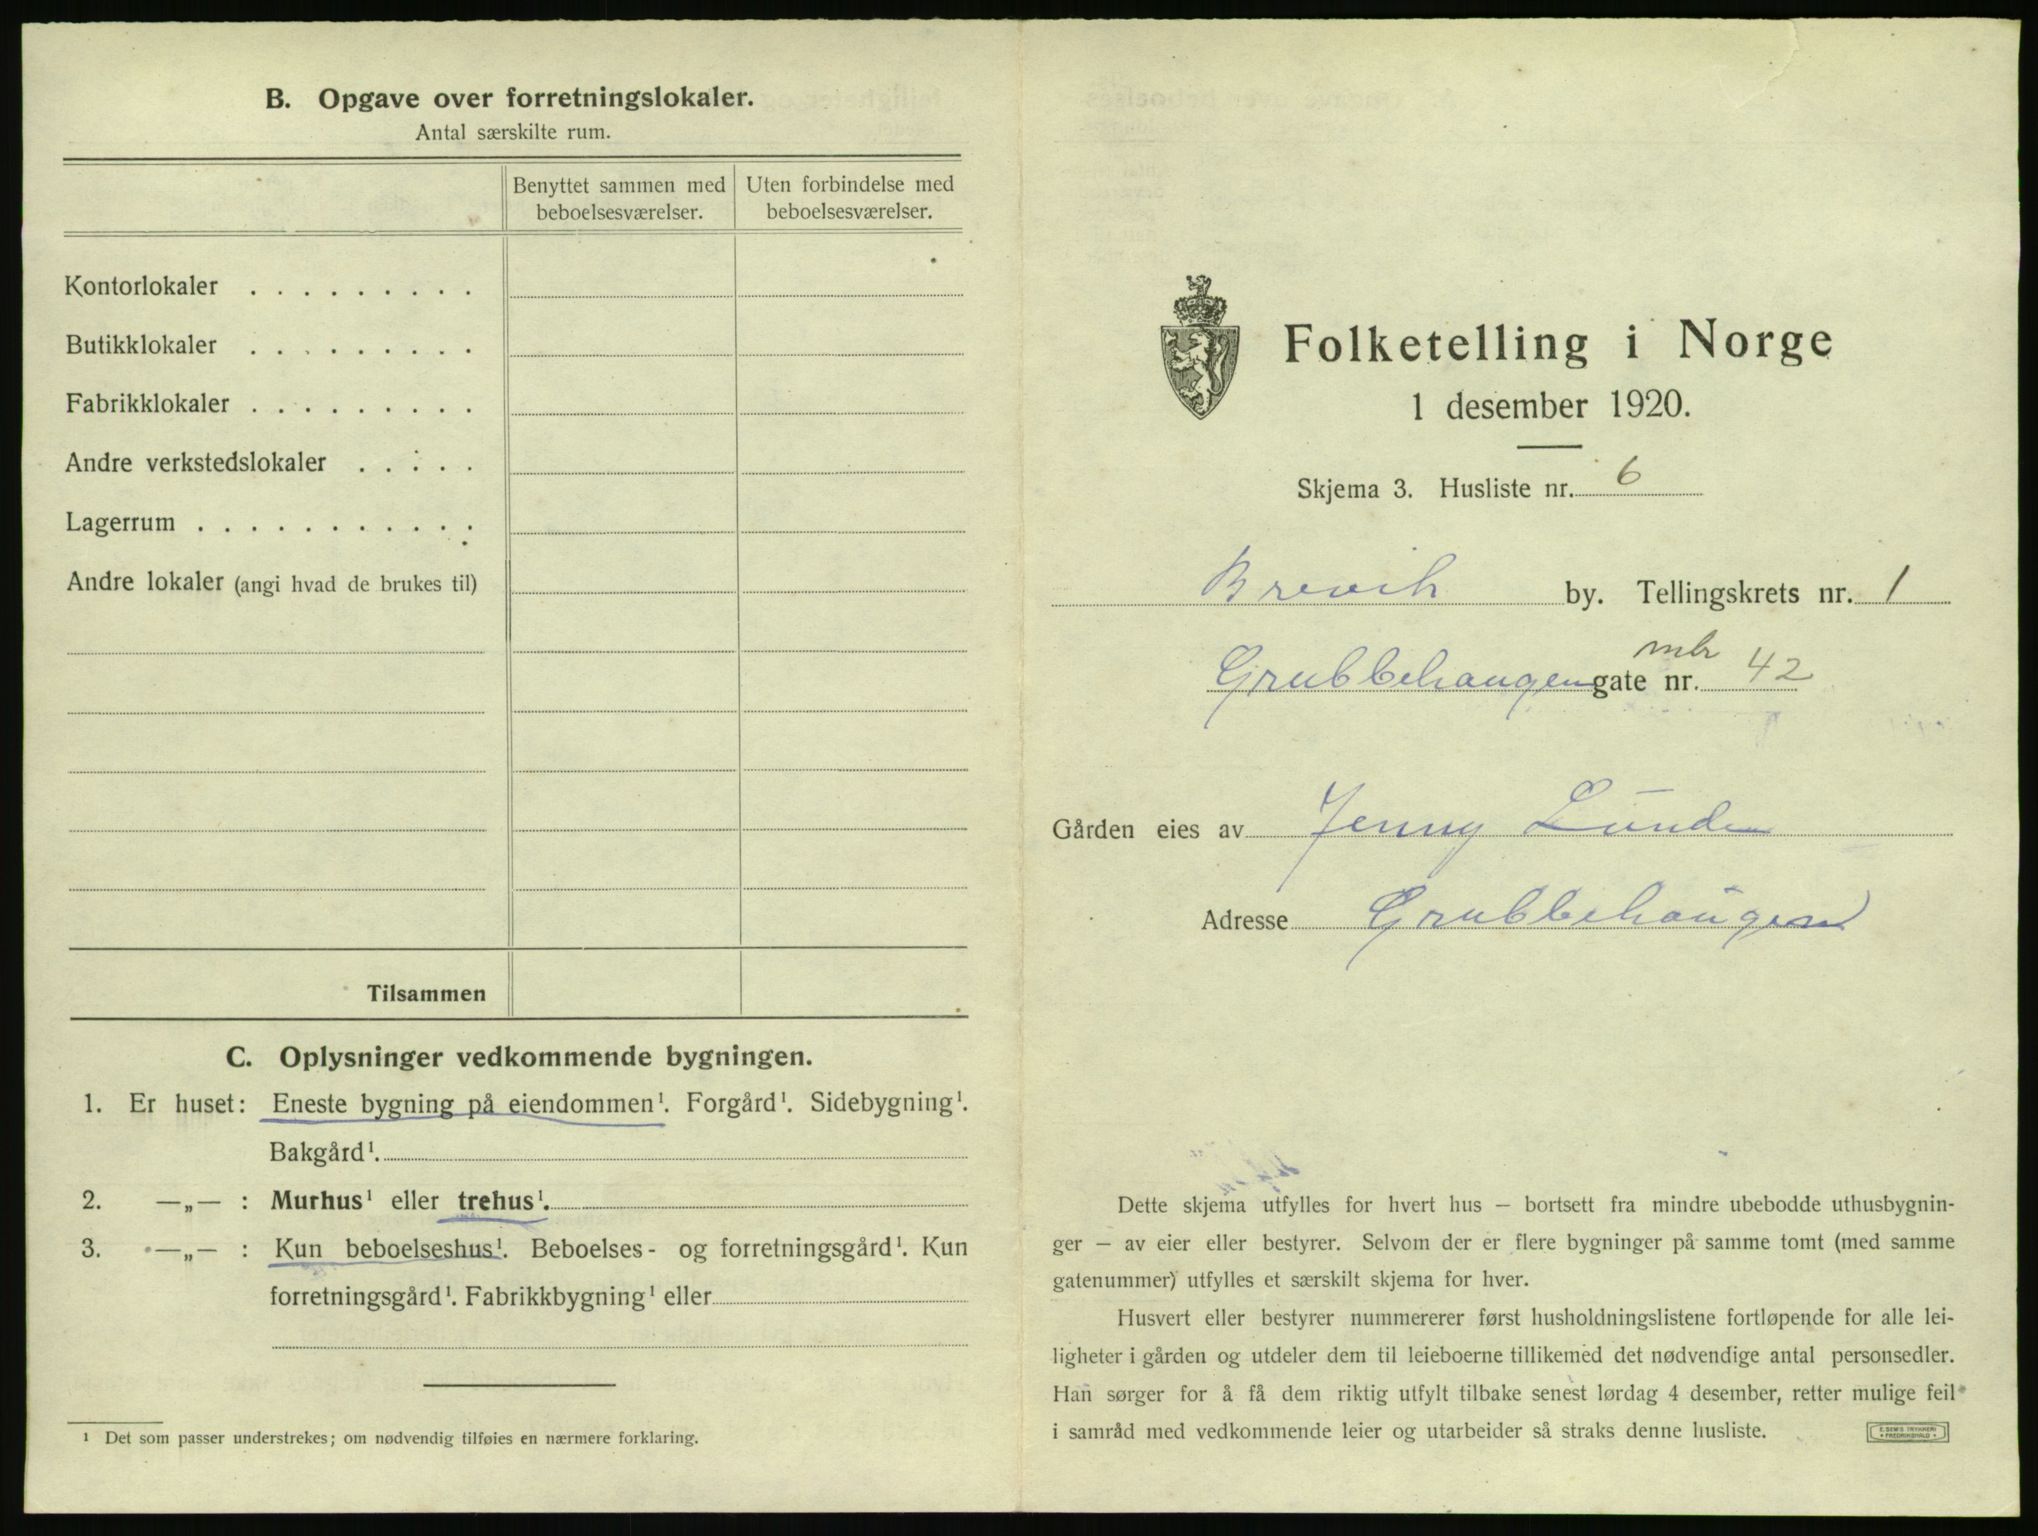 B. Opgave over forretningslokaler.
Antal særskilte rum.
Benyttet sammen med beboelsesværelser.
Uten forbindelse med beboelsesværelser.
Kontorlokaler . . . . . . . . .
Butikklokaler . . . . . . . . .
Fabrikklokaler . . . . . . . . .
Andre verkstedslokaler . . . . .
Lagerrum . . . . . . . . . . .
Andre lokaler (angi hvad de brukes til)
Tilsammen
C. Oplysninger vedkommende bygningen.
1. Er huset: Eneste bygning på eiendommen¹. Forgård¹. Sidebygning¹.
Bakgård¹.
2. —„— : Murhus¹ eller trehus¹.
3. —„— : Kun beboelseshus¹. Beboelses- og forretningsgård¹. Kun
forretningsgård¹. Fabrikkbygning¹ eller
¹ Det som passer understrekes; om nødvendig tilføies en nærmere forklaring.
Folketelling i Norge
1 desember 1920.
Skjema 3. Husliste nr. 6
Brevik by. Tellingskrets nr. 1
mbr
Grubbehaugen gate nr. 42
Gården eies av Jenny Lunde
Adresse Grubbehaugen
Dette skjema utfylles for hvert hus – bortsett fra mindre ubebodde uthusbygnin-
ger – av eier eller bestyrer. Selvom der er flere bygninger på samme tomt (med samme
gatenummer) utfylles et særskilt skjema for hver.
Husvert eller bestyrer nummererer først husholdningslistene fortløpende for alle lei-
ligheter i gården og utdeler dem til leieboerne tillikemed det nødvendige antal personsedler.
Han sørger for å få dem riktig utfylt tilbake senest lørdag 4 desember, retter mulige feil
i samråd med vedkommende leier og utarbeider så straks denne husliste.
E. SEM'S TRYKKERI
FREDRIKSHALD